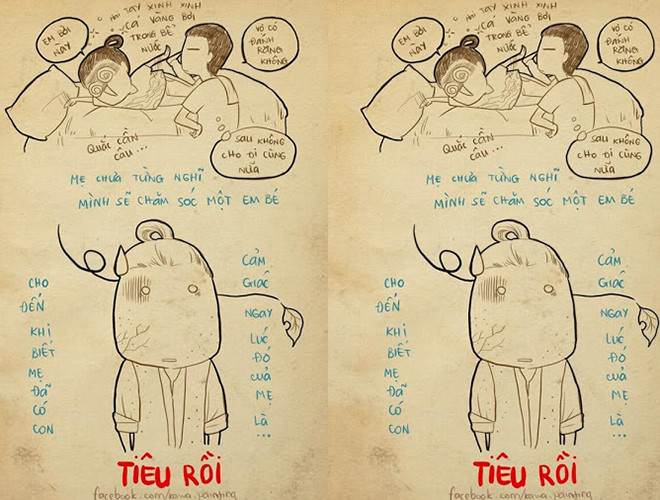 EM BƠI
NÀY
HAI TAY XINH XINH
CÁ VÀNG BƠI
TRONG BỂ
NƯỚC
VỢ CÓ
ĐÁNH
RĂNG
KHÔNG
QUÁC CẦN
CÂU ...
SAU KHÔNG
CHO ĐI CÙNG
NỮA
MẸ CHƯA TỪNG NGHĨ
MÌNH SẼ CHĂM SÓC MỘT EM BÉ
CHO
ĐẾN
KHI
BIẾT
MẸ
ĐÃ
CÓ
CON
CẢM
GIÁC
NGAY
LÚC
ĐÓ
CỦA
MẸ
LÀ
...
TIÊU RỒI
facebook.com/kawa.painting
EM BƠI
NÀY
HAI TAY XINH XINH
CÁ VÀNG BƠI
TRONG BỂ
NƯỚC
VỢ CÓ
ĐÁNH
RĂNG
KHÔNG
QUÁC CẦN
CÂU ...
SAU KHÔNG
CHO ĐI CÙNG
NỮA
MẸ CHƯA TỪNG NGHĨ
MÌNH SẼ CHĂM SÓC MỘT EM BÉ
CHO
ĐẾN
KHI
BIẾT
MẸ
ĐÃ
CÓ
CON
CẢM
GIÁC
NGAY
LÚC
ĐÓ
CỦA
MẸ
LÀ
...
TIÊU RỒI
facebook.com/kawa.painting